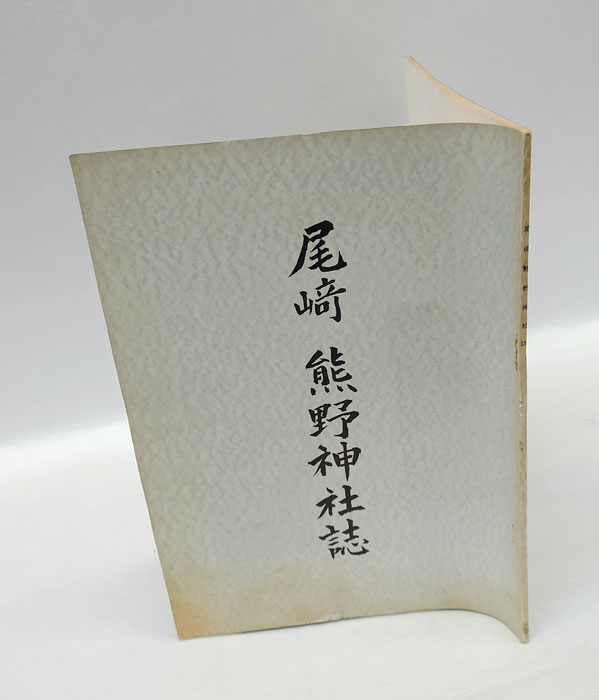 尾﨑 熊野神社誌
尾﨑熊野神社誌